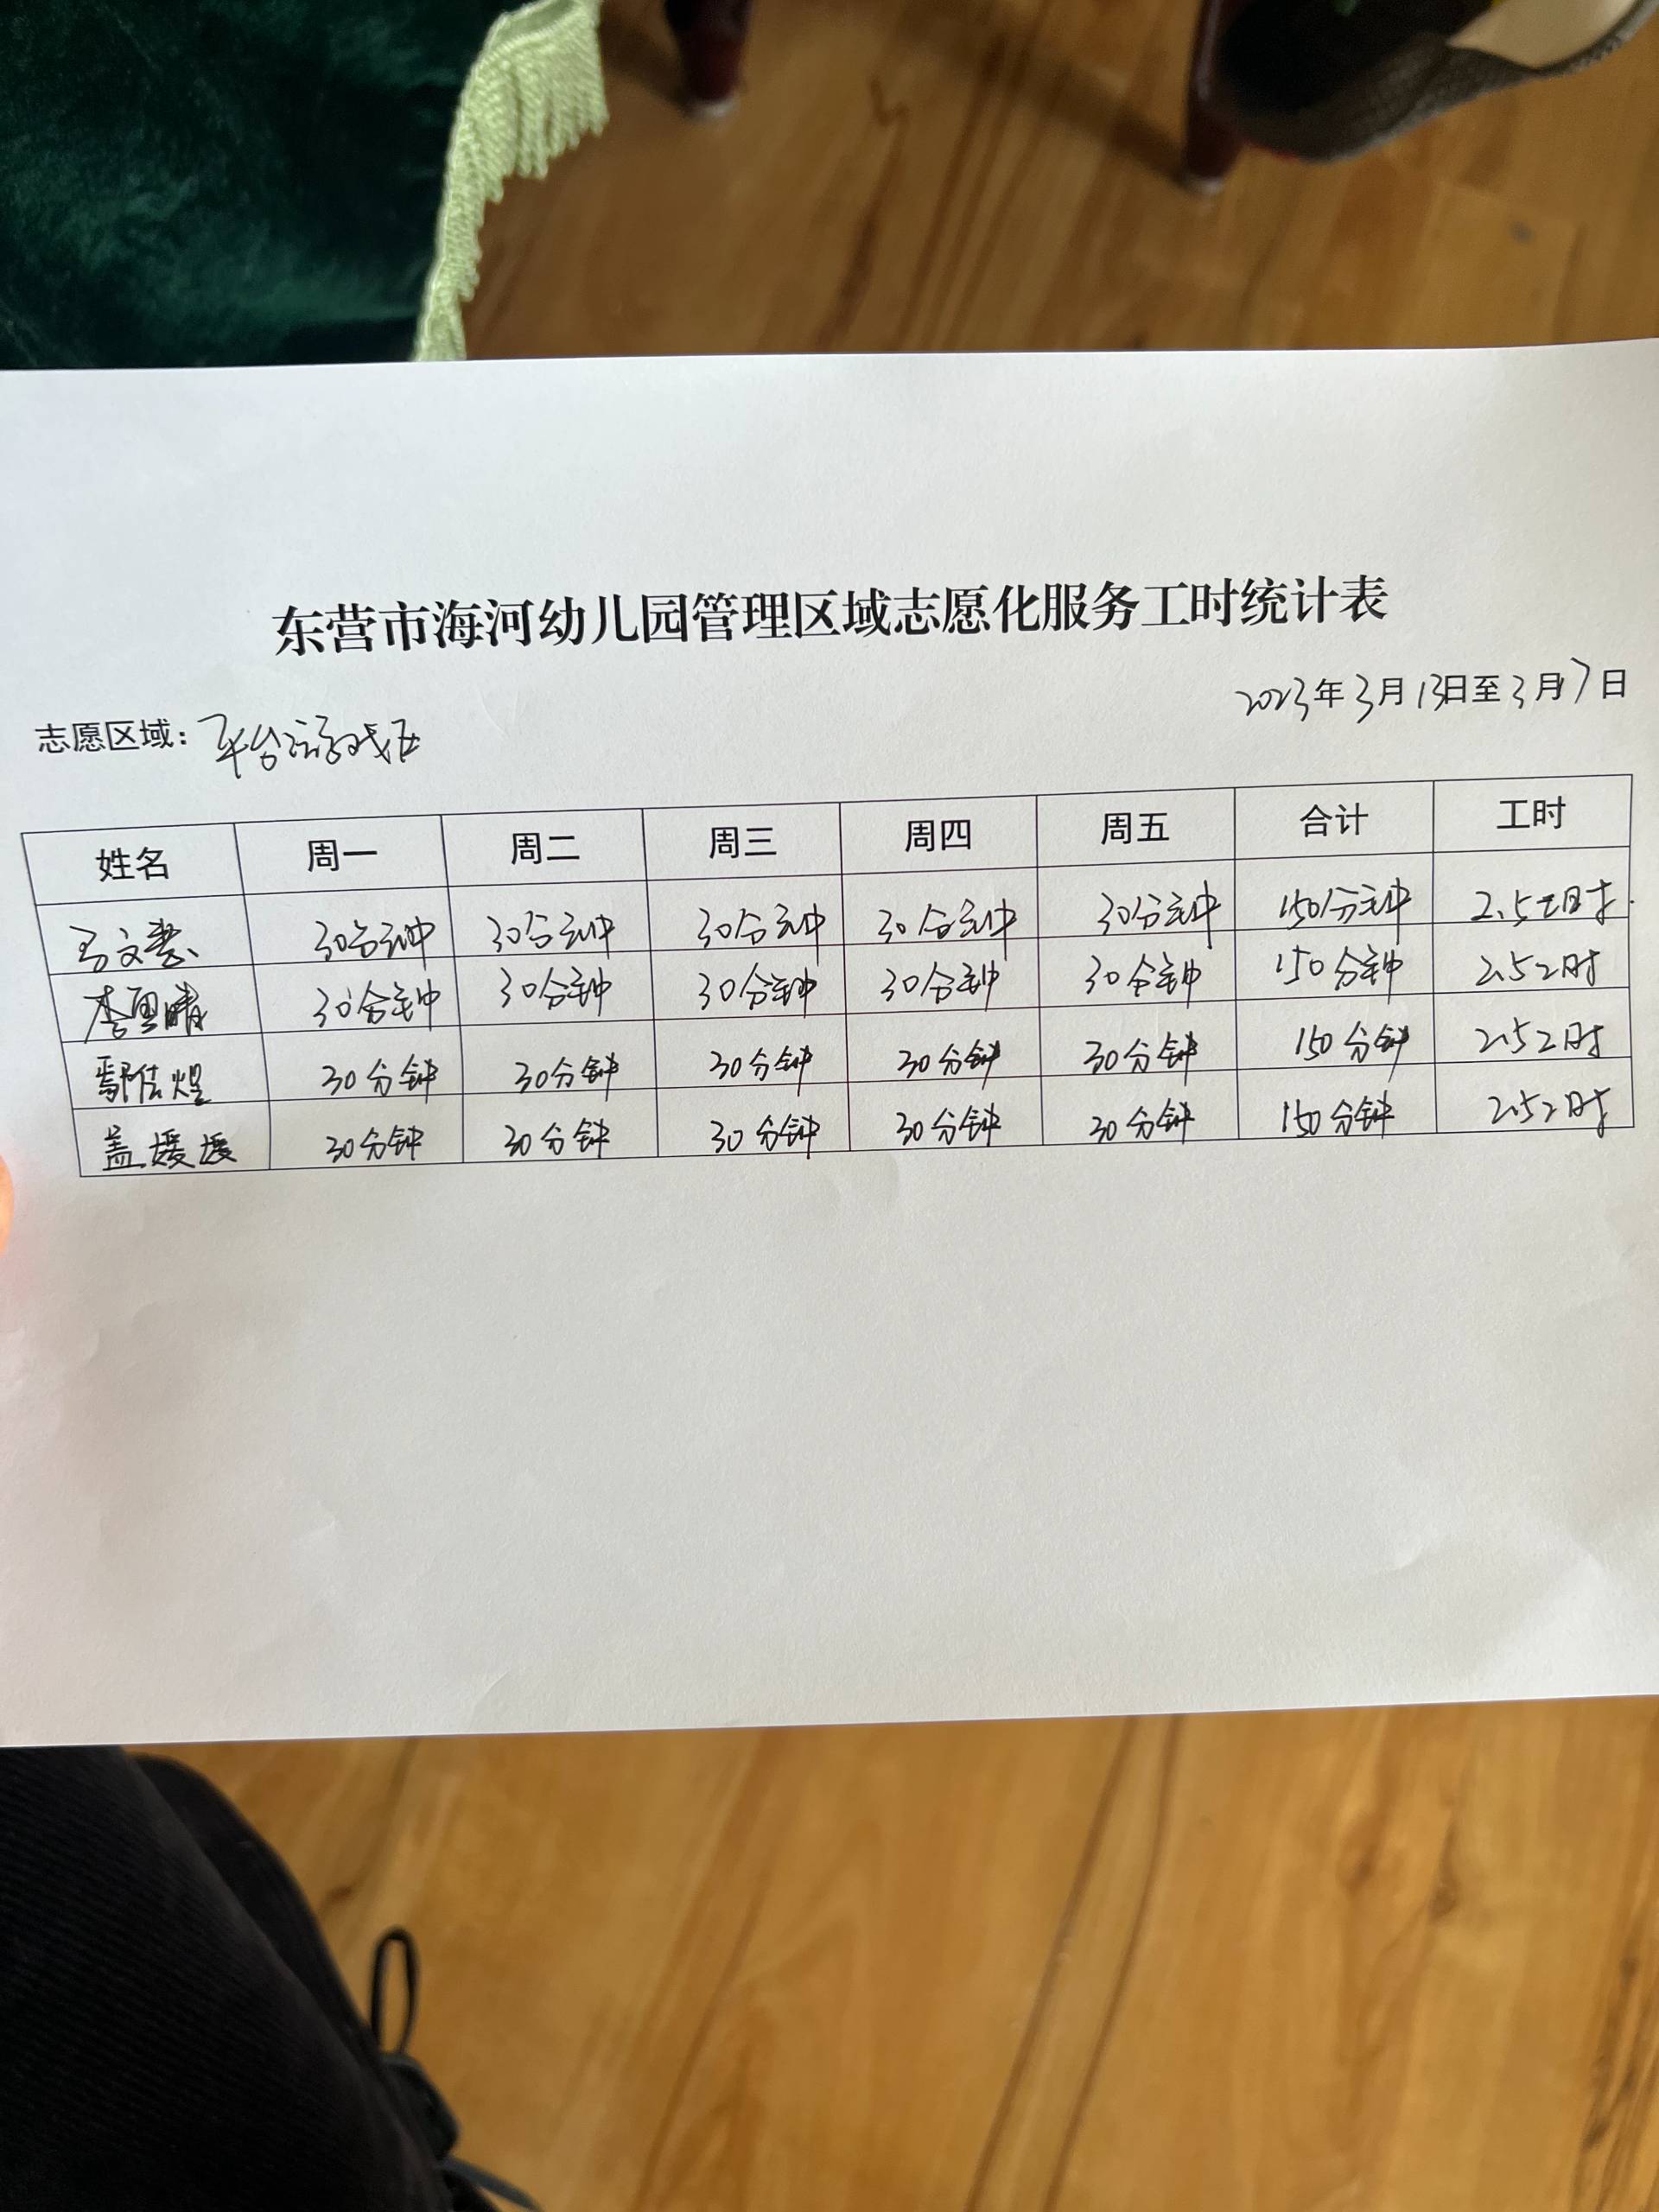 东营市海河幼儿园管理区域志愿化服务工时统计表
2023年3月13日至3月17日
志愿区域：平台游戏区
姓名 周一 周二 周三 周四 周五 合计 工时
30分钟 30分钟 30分钟 30分钟 30分钟 150分钟 2.5工时.
李思晴 30分钟 30分钟 30分钟 30分钟 30分钟 150分钟 2.5工时
30分钟 30分钟 30分钟 30分钟 30分钟 150分钟 2.5工时
盖媛媛 30分钟 30分钟 30分钟 30分钟 30分钟 150分钟 2.5工时